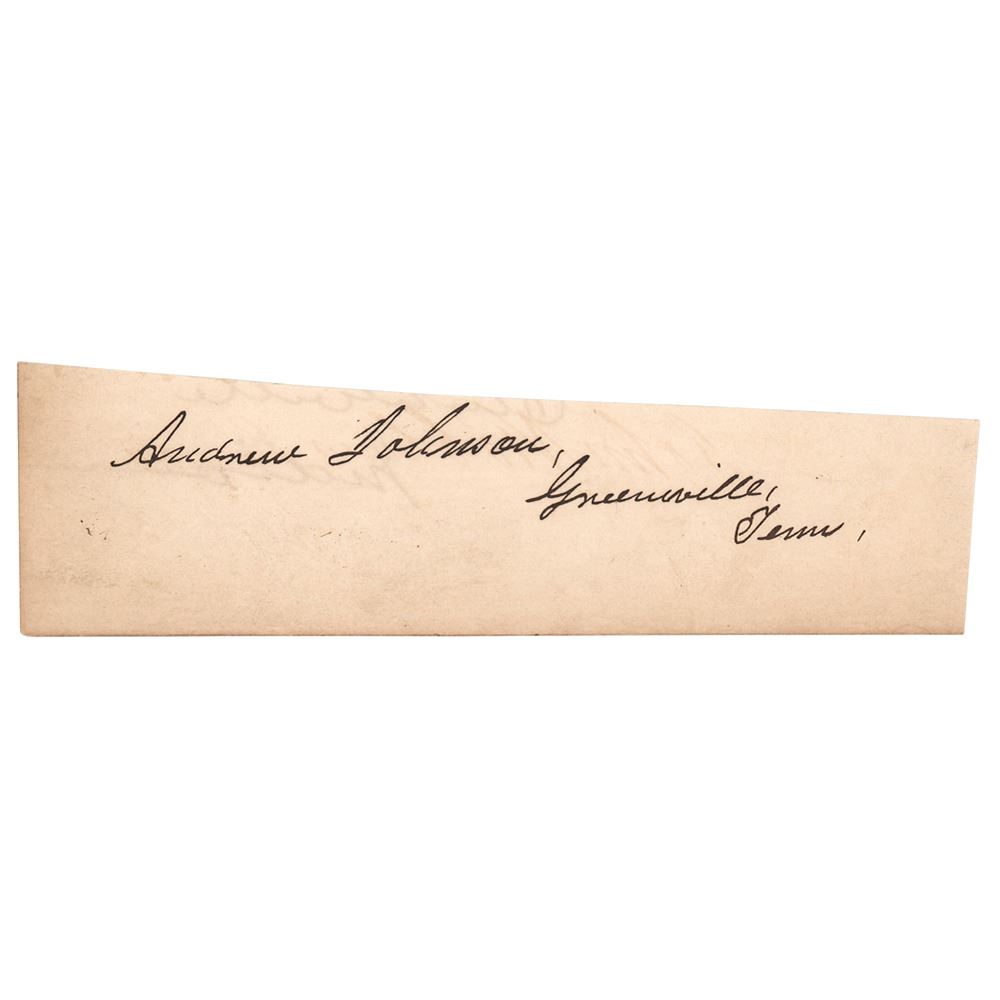 Andrew Johnson,
Greeneville,
Tenn,